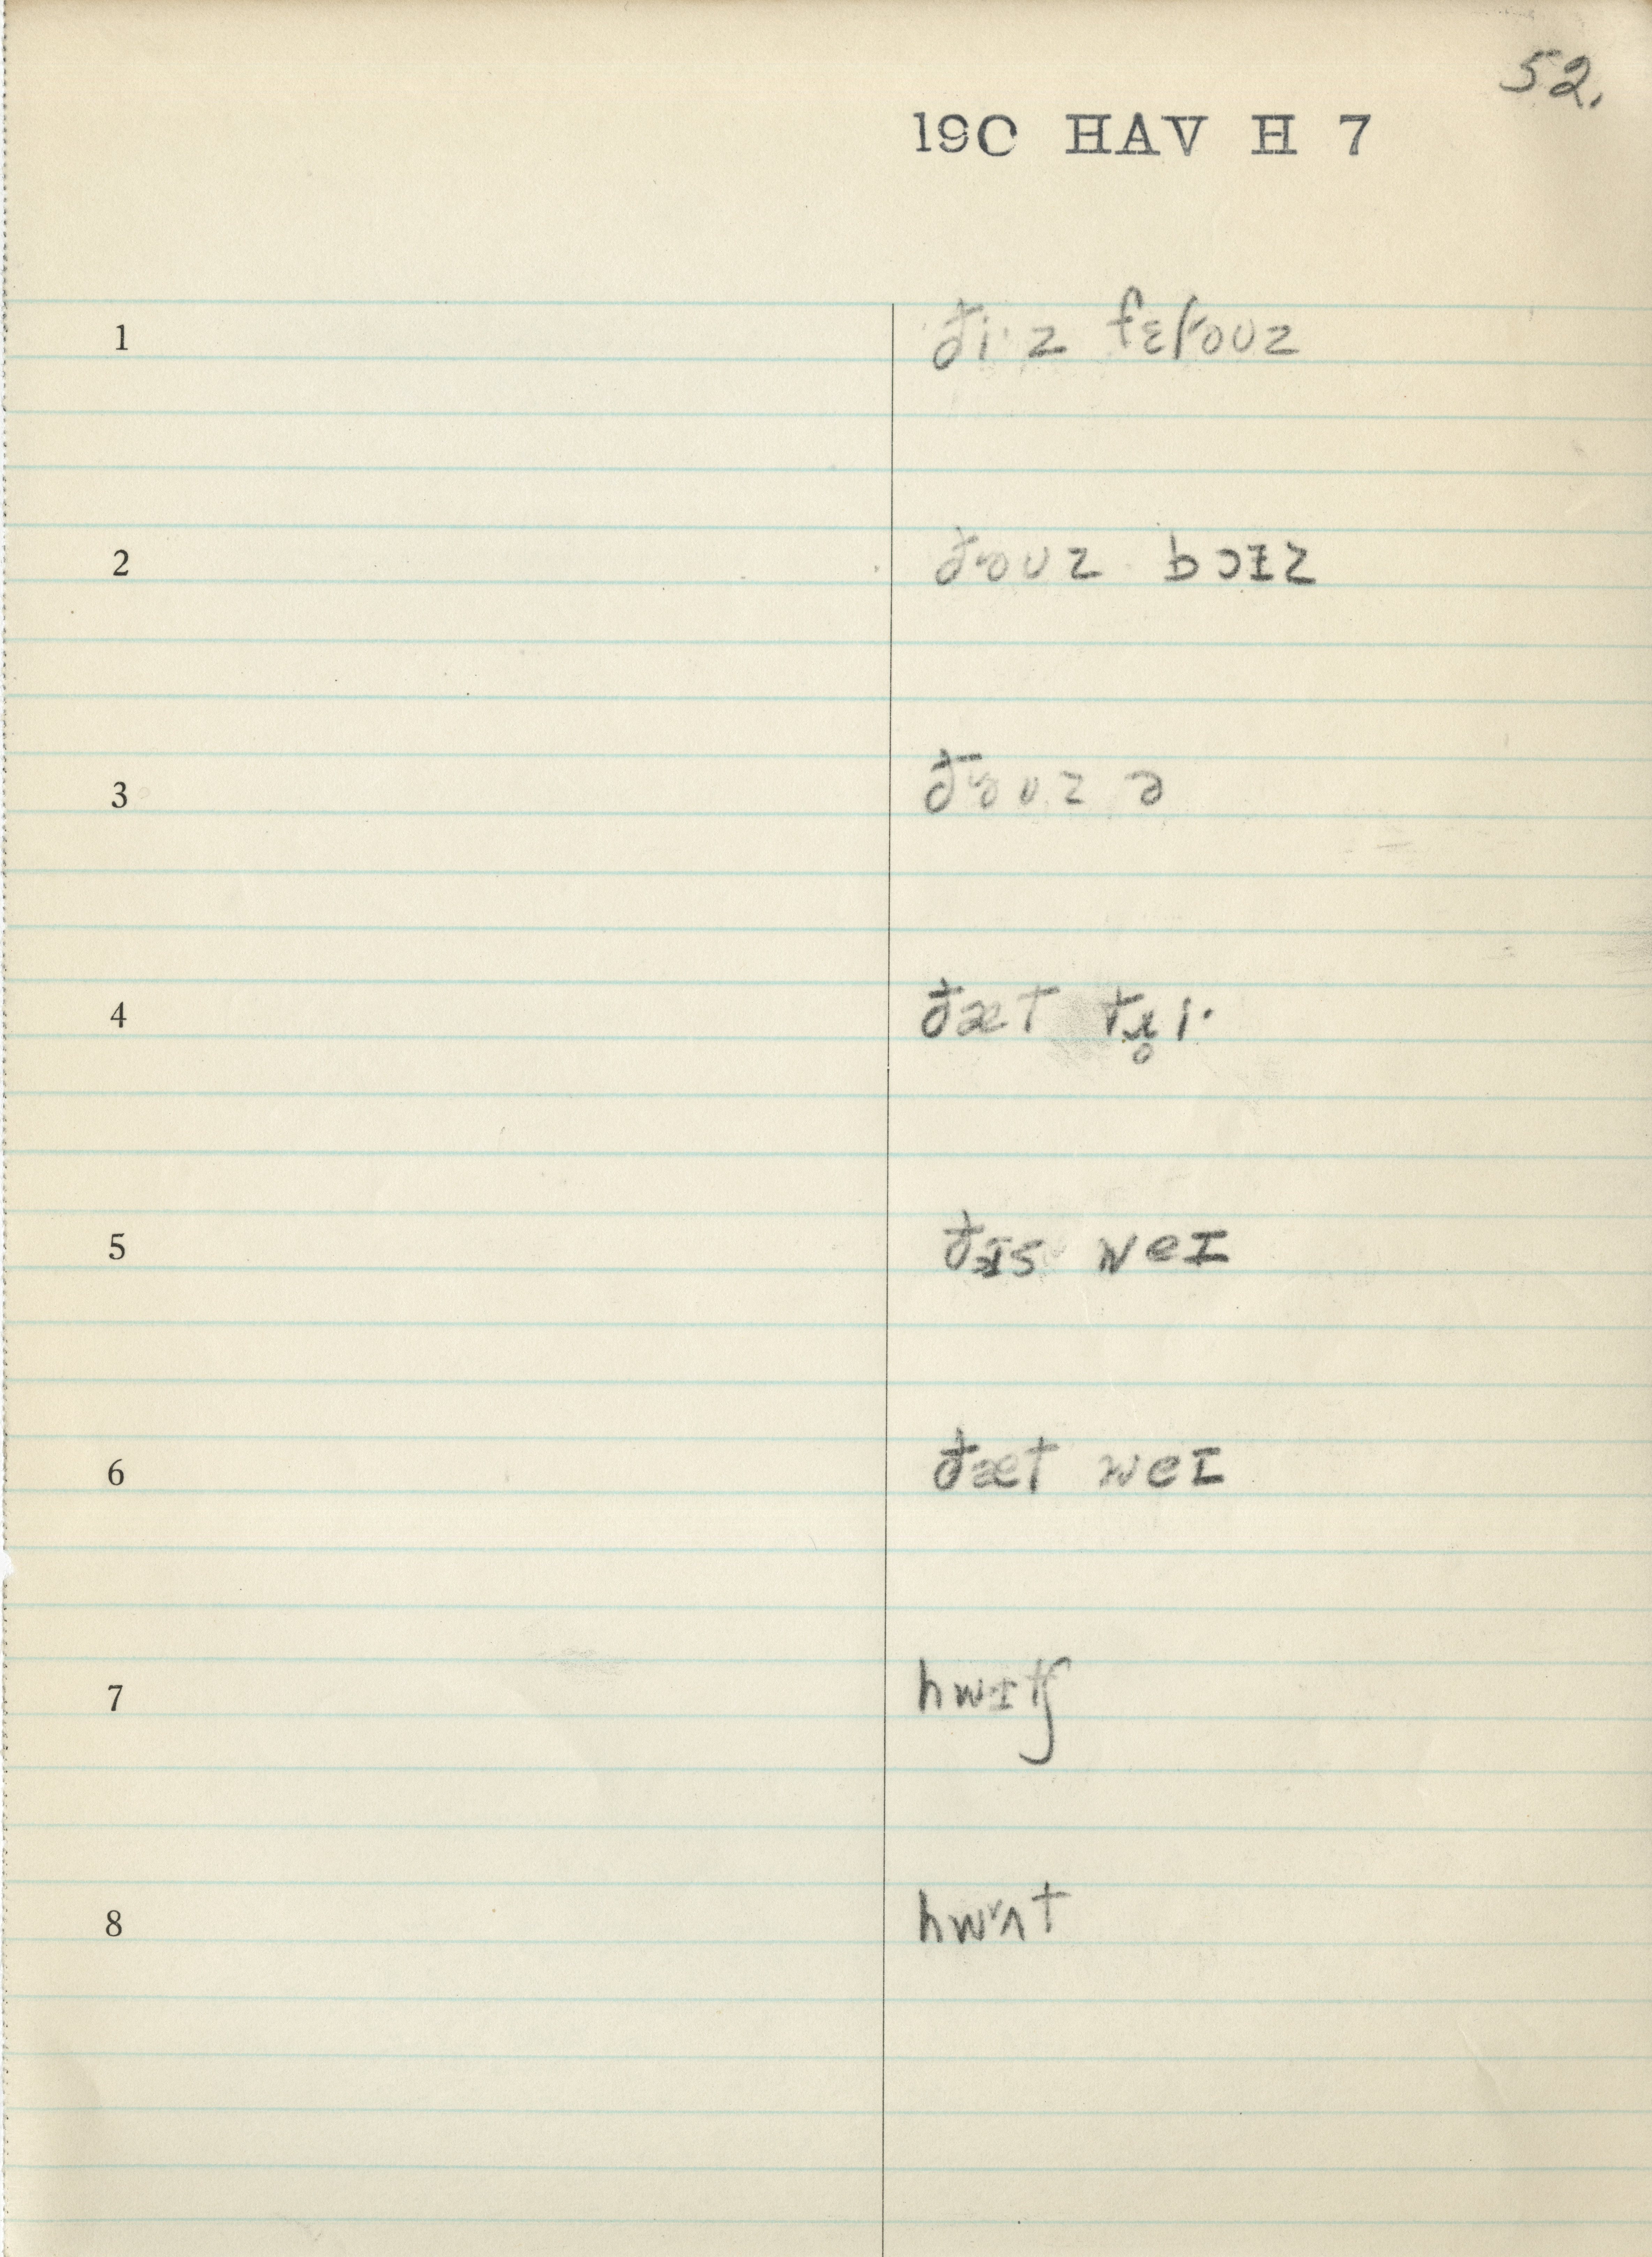 52.
190 HAV H 7
1 ði·z fɛloᴜz
2 ðoᴜz bɔɪz
3 ðoᴜz ə
4 ðæt tɹ̥i·
5 ðɪs weɪ
6 ðæt weɪ
7 hwɪtʃ
8 hwʌt